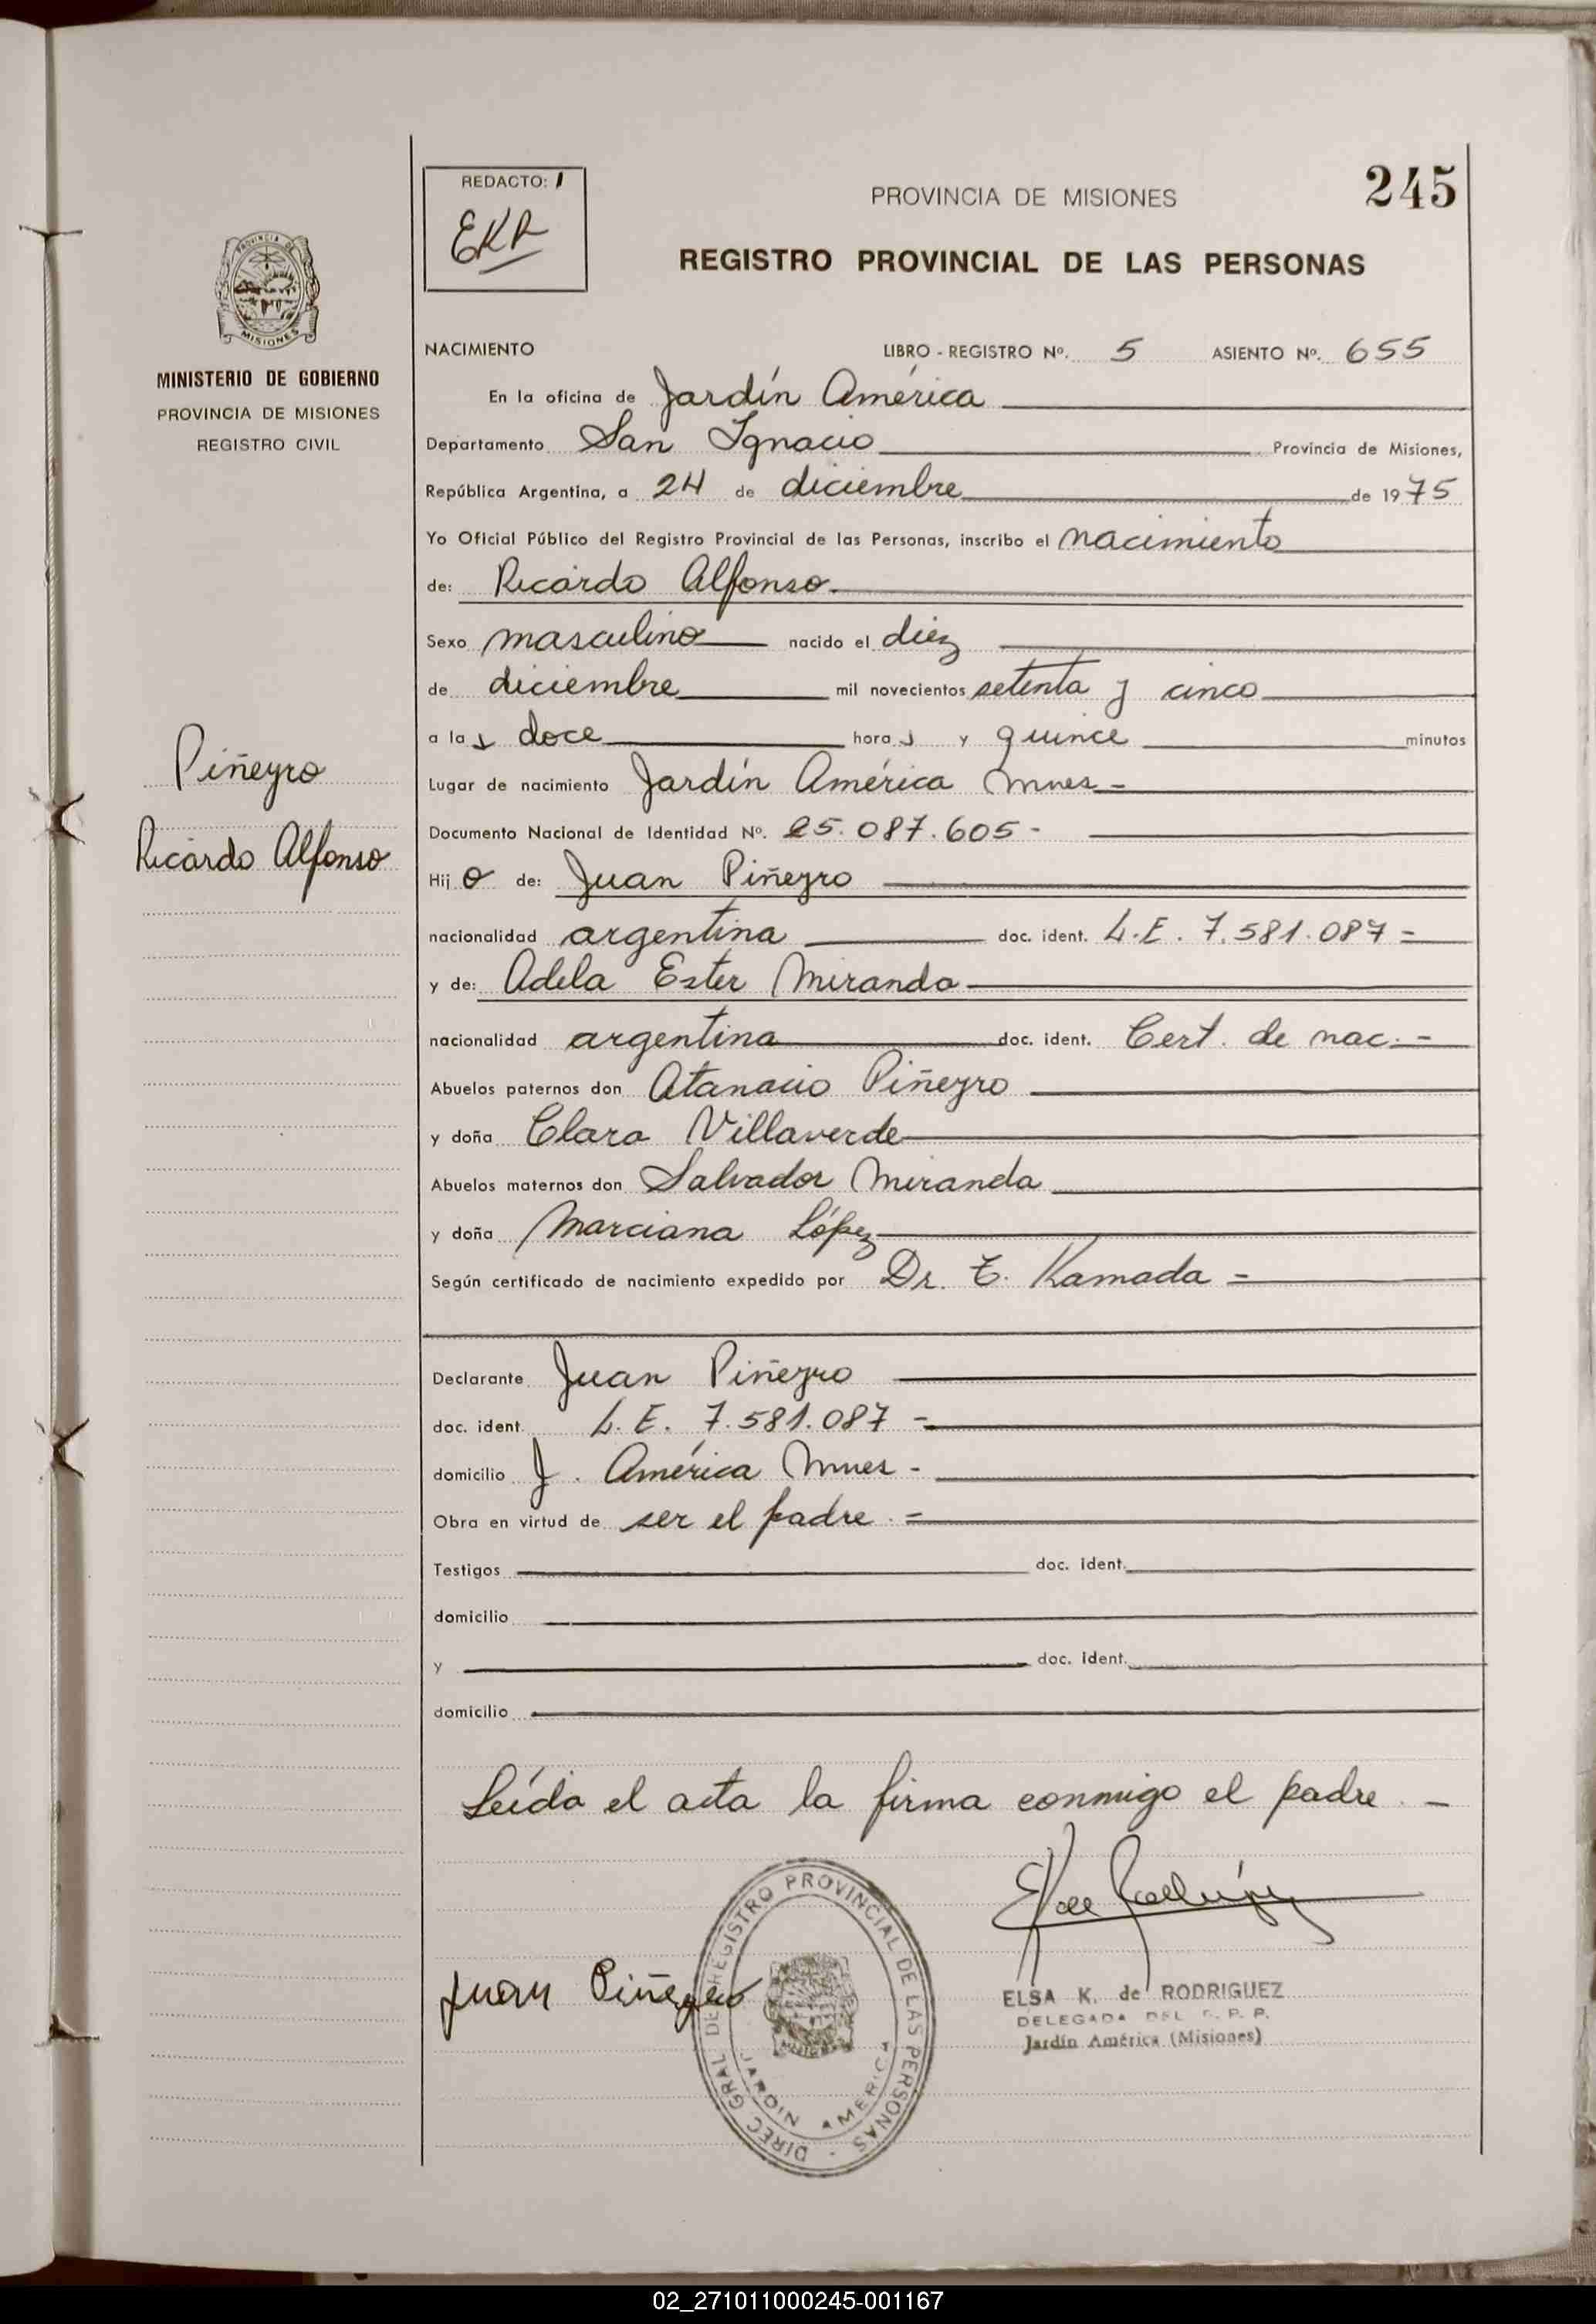 REDACTO:
EKR
PROVINCIA DE MISIONES
245
REGISTRO PROVINCIAL DE LAS PERSONAS
PROVINCIA DE
MISIONES
MINISTERIO DE GOBIERNO
PROVINCIA DE MISIONES
REGISTRO CIVIL
NACIMIENTO LIBRO - REGISTRO Nº. 5 ASIENTO Nº. 655
En la oficina de Jardín América
Departamento San Ignacio Provincia de Misiones,
República Argentina, a 24 de diciembre de 1975
Yo Oficial Público del Registro Provincial de las Personas, inscribo el nacimiento
de: Ricardo Alfonso.
Sexo masculino nacido el diez
de diciembre mil novecientos setenta y cinco
a las doce horas y quince minutos
Piñeyro
Ricardo Alfonso
Lugar de nacimiento Jardín América Mnes -
Documento Nacional de Identidad Nº. 25.087.605 -
Hijo de: Juan Piñeyro
nacionalidad argentina doc. ident. L.E. 7.581.087 =
y de: Adela Ester Miranda
nacionalidad argentina doc. ident. Cert. de nac. -
Abuelos paternos don Atanacio Piñeyro
y doña Clara Villaverde
Abuelos maternos don Salvador Miranda
y doña Marciana López
Según certificado de nacimiento expedido por Dr. T. Kamada =
Declarante Juan Piñeyro
doc. ident. L.E. 7.581.087 =
domicilio J. América Mnes -
Obra en virtud de ser el padre. =
Testigos doc. ident.
domicilio
y doc. ident.
domicilio
Leída el acta la firma conmigo el padre. -
Juan Piñeyro
DIREC GRAL DEL REGISTRO PROVINCIAL DE LAS PERSONAS -
JARDIN AMERICA
ELSA K. de RODRIGUEZ
DELEGADA DEL R. P. P.
Jardín América (Misiones)
02_271011000245-001167